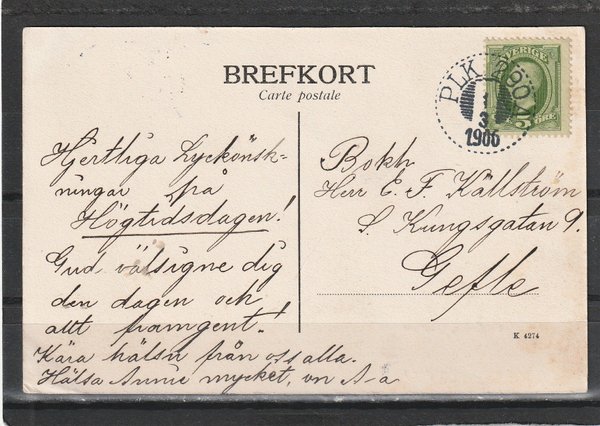 BREFKORT
Carte postale
SVERIGE
ÖRE
PLK
1
3
1906
Hjertliga Lyckönsk-
ningar på
Högtidsdagen!
Gud välsigne dig
den dagen och
allt framgent!
Kära hälsn från oss alla.
Hälsa Annie mycket, von A-a
Bokh.
Herr E. F. Källström
S. Kungsgatan 9.
Gefle
K 4274